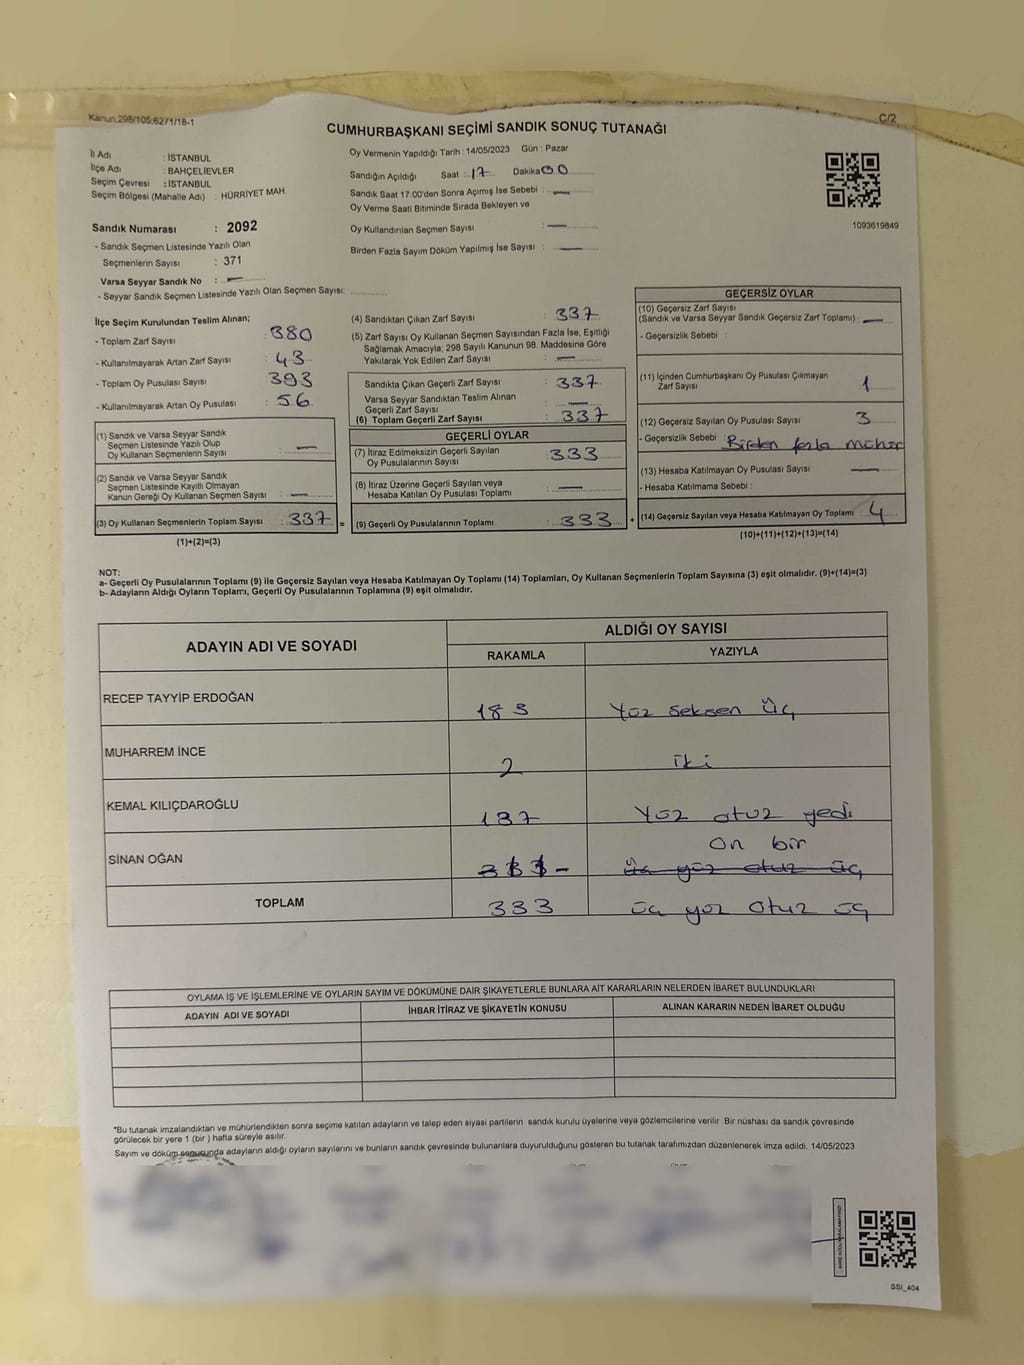 Kanun:298/105,6271/18-1
C/2
CUMHURBAŞKANI SEÇİMİ SANDIK SONUÇ TUTANAĞI
İl Adı : İSTANBUL
İlçe Adı : BAHÇELİEVLER
Seçim Çevresi : İSTANBUL
Seçim Bölgesi (Mahalle Adı) : HÜRRİYET MAH.
Sandık Numarası : 2092
- Sandık Seçmen Listesinde Yazılı Olan
Seçmenlerin Sayısı : 371
Varsa Seyyar Sandık No : —
- Seyyar Sandık Seçmen Listesinde Yazılı Olan Seçmen Sayısı:
Oy Vermenin Yapıldığı Tarih : 14/05/2023 Gün : Pazar
Sandığın Açıldığı Saat : 17 Dakika 00
Sandık Saat 17.00'den Sonra Açımış İse Sebebi : —
Oy Verme Saati Bitiminde Sırada Bekleyen ve
Oy Kullandırılan Seçmen Sayısı : —
Birden Fazla Sayım Döküm Yapılmış İse Sayısı : —
1093619849
İlçe Seçim Kurulundan Teslim Alınan;
- Toplam Zarf Sayısı : 380
- Kullanılmayarak Artan Zarf Sayısı : 43
- Toplam Oy Pusulası Sayısı : 393
- Kullanılmayarak Artan Oy Pusulası : 56
(1) Sandık ve Varsa Seyyar Sandık
Seçmen Listesinde Yazılı Olup
Oy Kullanan Seçmenlerin Sayısı : —
(2) Sandık ve Varsa Seyyar Sandık
Seçmen Listesinde Kayıtlı Olmayan
Kanun Gereği Oy Kullanan Seçmen Sayısı : —
(3) Oy Kullanan Seçmenlerin Toplam Sayısı : 337 =
(1)+(2)=(3)
(4) Sandıktan Çıkan Zarf Sayısı : 337
(5) Zarf Sayısı Oy Kullanan Seçmen Sayısından Fazla İse, Eşitliği
Sağlamak Amacıyla, 298 Sayılı Kanunun 98. Maddesine Göre
Yakılarak Yok Edilen Zarf Sayısı : —
Sandıkta Çıkan Geçerli Zarf Sayısı : 337
Varsa Seyyar Sandıktan Teslim Alınan
Geçerli Zarf Sayısı : —
(6) Toplam Geçerli Zarf Sayısı : 337
GEÇERLİ OYLAR
(7) İtiraz Edilmeksizin Geçerli Sayılan
Oy Pusulalarının Sayısı : 333
(8) İtiraz Üzerine Geçerli Sayılan veya
Hesaba Katılan Oy Pusulası Toplamı : —
(9) Geçerli Oy Pusulalarının Toplamı : 333 +
GEÇERSİZ OYLAR
(10) Geçersiz Zarf Sayısı
(Sandık ve Varsa Seyyar Sandık Geçersiz Zarf Toplamı) : —
- Geçersizlik Sebebi :
(11) İçinden Cumhurbaşkanı Oy Pusulası Çıkmayan
Zarf Sayısı : 1
(12) Geçersiz Sayılan Oy Pusulası Sayısı : 3
- Geçersizlik Sebebi : Birden fazla mühür
(13) Hesaba Katılmayan Oy Pusulası Sayısı : —
- Hesaba Katılmama Sebebi :
(14) Geçersiz Sayılan veya Hesaba Katılmayan Oy Toplamı : 4
(10)+(11)+(12)+(13)=(14)
NOT:
a- Geçerli Oy Pusulalarının Toplamı (9) ile Geçersiz Sayılan veya Hesaba Katılmayan Oy Toplamı (14) Toplamları, Oy Kullanan Seçmenlerin Toplam Sayısına (3) eşit olmalıdır. (9)+(14)=(3)
b- Adayların Aldığı Oyların Toplamı, Geçerli Oy Pusulalarının Toplamına (9) eşit olmalıdır.
ADAYIN ADI VE SOYADI
ALDIĞI OY SAYISI
RAKAMLA YAZIYLA
RECEP TAYYİP ERDOĞAN 183 Yüz seksen üç
MUHARREM İNCE 2 iki
KEMAL KILIÇDAROĞLU 137 Yüz otuz yedi
On bir
SİNAN OĞAN üç yüz otuz üç
TOPLAM 333 üç yüz otuz üç
OYLAMA İŞ VE İŞLEMLERİNE VE OYLARIN SAYIM VE DÖKÜMÜNE DAİR ŞİKAYETLERLE BUNLARA AİT KARARLARIN NELERDEN İBARET BULUNDUKLARI
ADAYIN ADI VE SOYADI İHBAR İTİRAZ VE ŞİKAYETİN KONUSU ALINAN KARARIN NEDEN İBARET OLDUĞU
*Bu tutanak imzalandıktan ve mühürlendikten sonra seçime katılan adayların ve talep eden siyasi partilerin sandık kurulu üyelerine veya gözlemcilerine verilir. Bir nüshası da sandık çevresinde
görülecek bir yere 1 (bir ) hafta süreyle asılır.
Sayım ve döküm sonucunda adayların aldığı oyların sayılarını ve bunların sandık çevresinde bulunanlara duyurulduğunu gösteren bu tutanak tarafımızdan düzenlenerek imza edildi. 14/05/2023
SSI_404